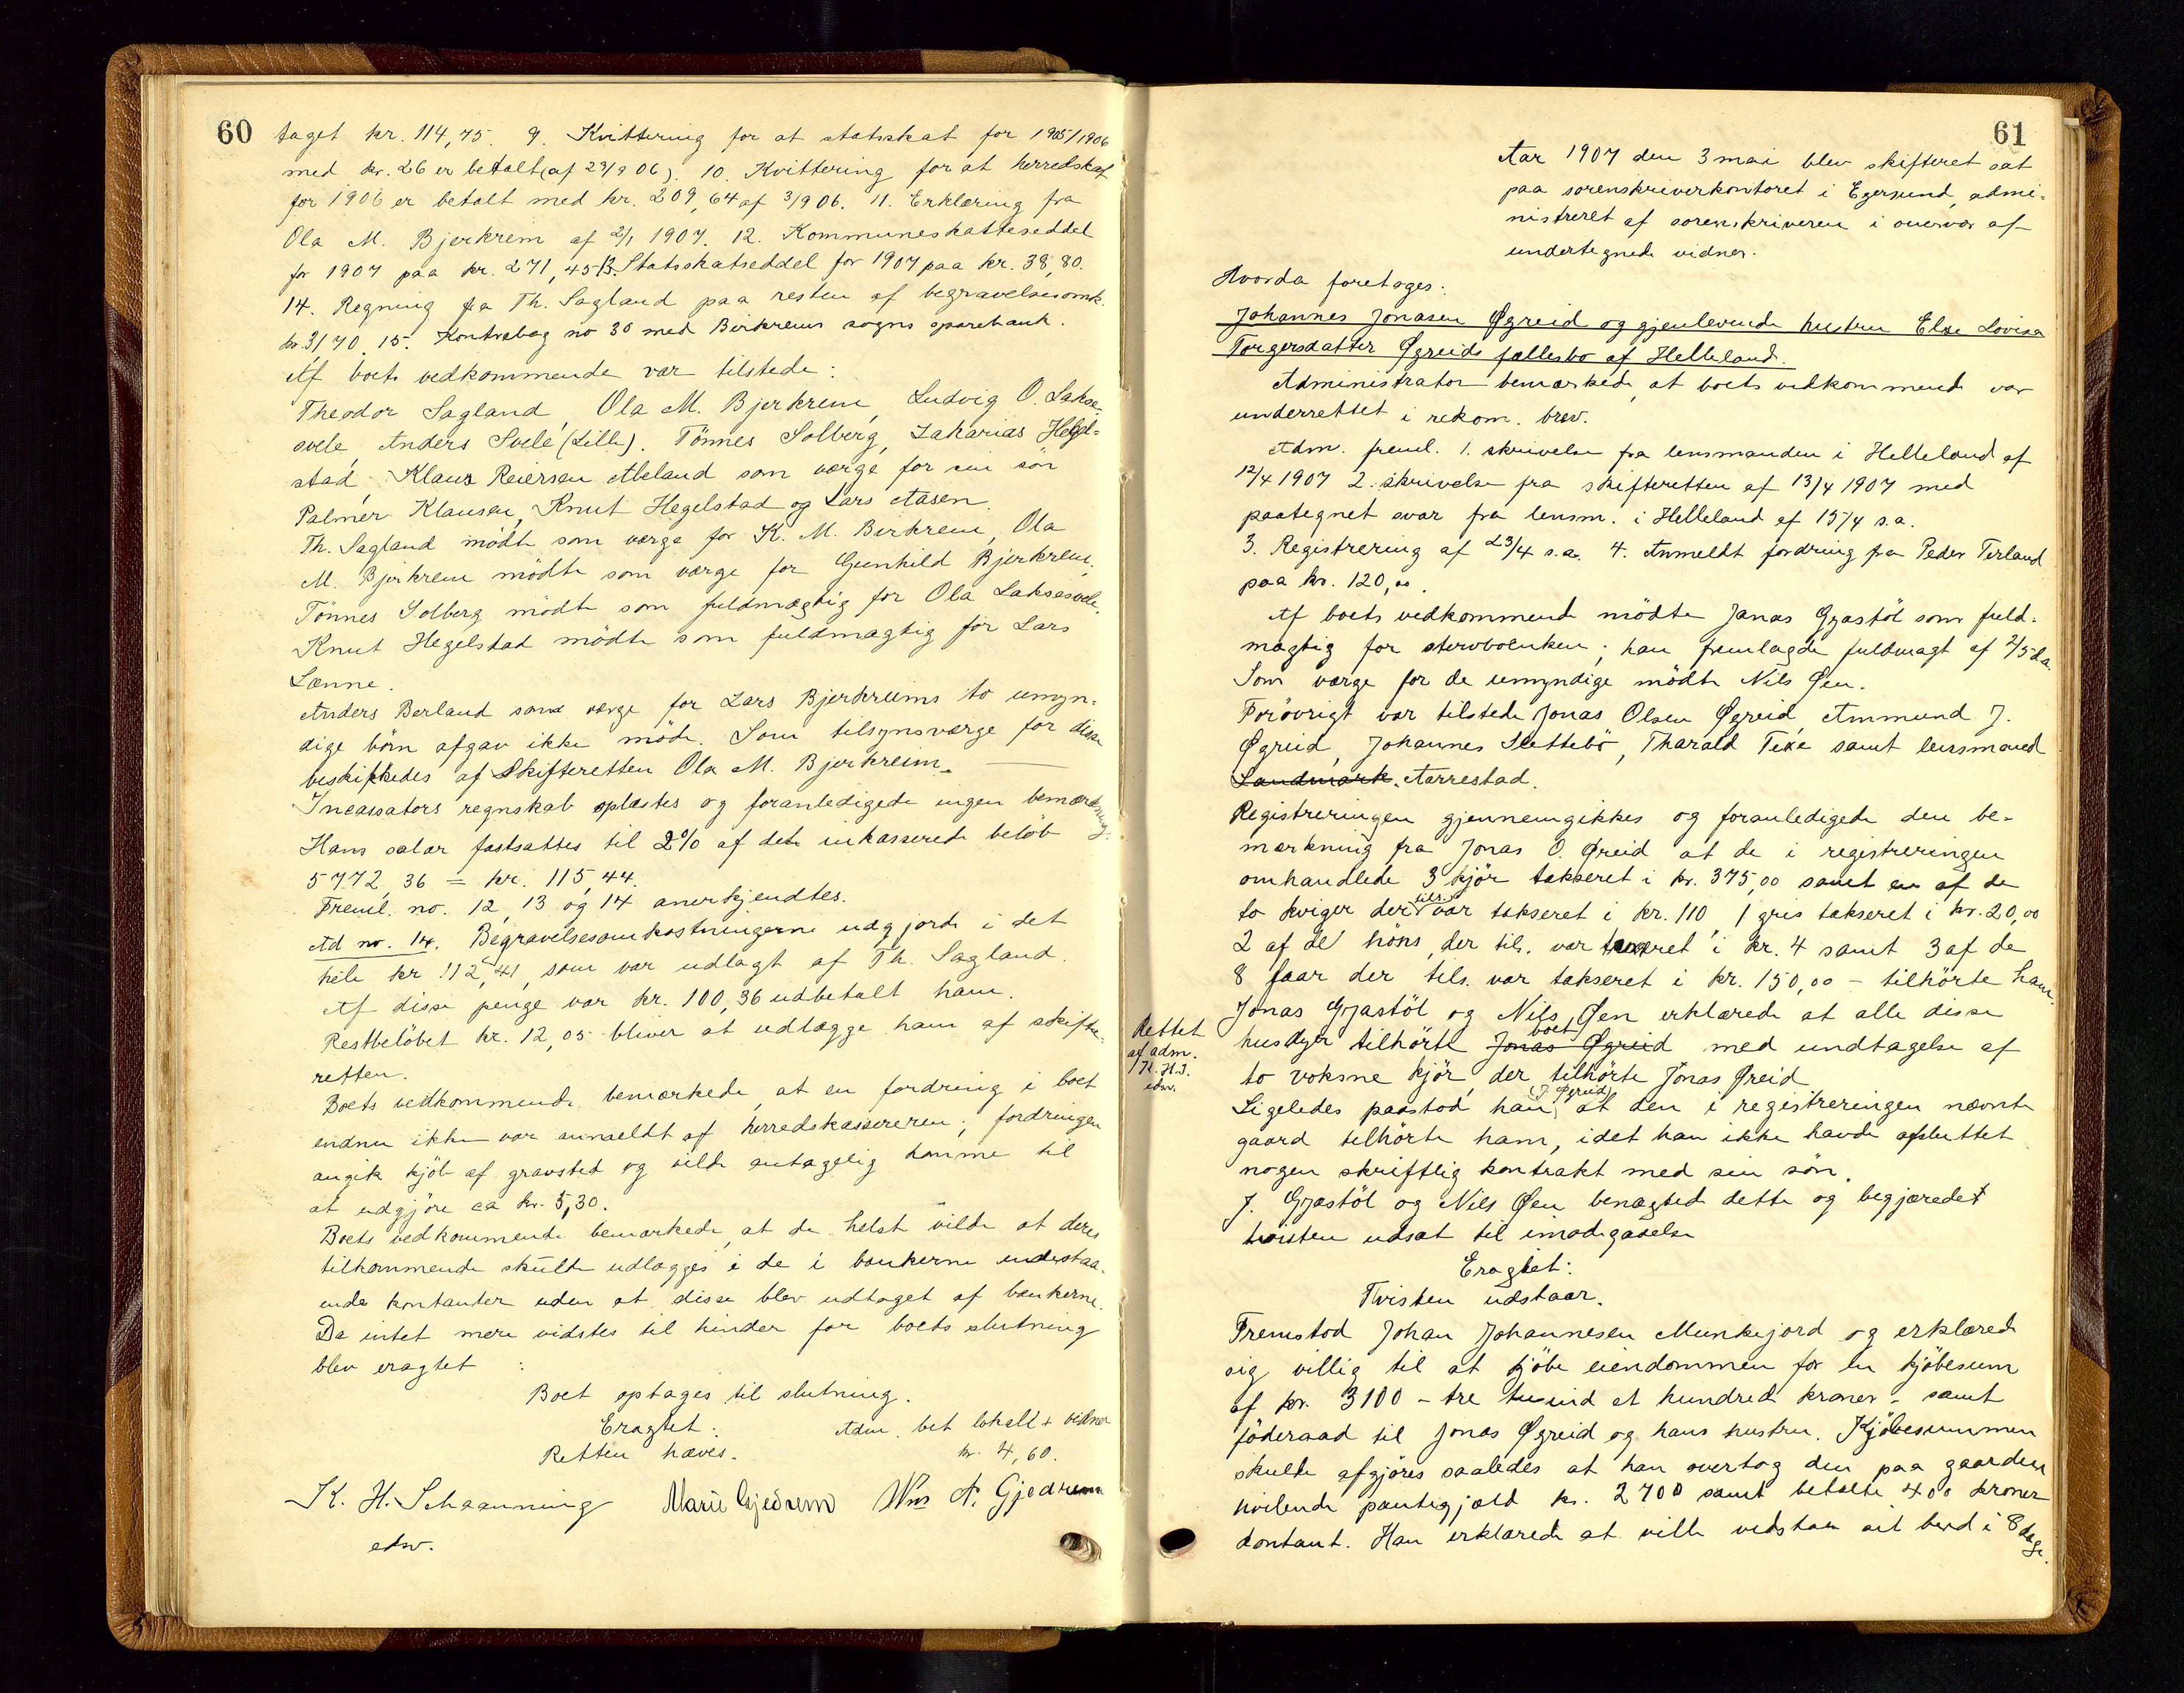 60
taget kr. 114,75. 9. Kvittering for at statsskat for 1905/1906
med kr. 26 er betalt (af 23/9 06). 10. Kvittering for at herredskat
for 1906 er betalt med kr. 209,64 af 3/9 06. 11. Erklæring fra
Ola M. Bjerkrem af 2/1 1907. 12. Kommuneskatteseddel
for 1907 paa kr. 271,45 13. Statsskatseddel for 1907 paa kr. 38,80.
14. Regning fra Th. Sagland paa resten af begravelsesomk.
kr. 31,70. 15. Kontrabog no 30 med Birkrems sogns sparebank.
Af boets vedkommende var tilstede:
Theodor Sagland, Ola M. Bjerkrem, Ludvig O. Lakse-
svele, Anders Svele (Lille). Tönnes Solberg, Zakarias Hegel-
stad, Klaus Reiersen Aleland som værge for sin sön
Palmer Klausen, Knut Hegelstad og Lars Aasen.
Th. Sagland mödte som værge for K. M. Birkrem, Ola
M. Bjerkrem mödte som værge for Gunhild Bjerkrem.
Tönnes Solberg mödte som fuldmægtig for Ola Laksesvele.
Knut Hegelstad mödte som fuldmægtig for Lars
Lønne.
Anders Berland som værge for Lars Bjerkreims to umyn-
dige börn afgav ikke möde. Som tilsynsværge for disse
beskikkedes af Skifteretten Ola M. Bjerkreim.
Incassators regnskab oplæstes og foranledigede ingen bemærkning.
Hans salær fastsattes til 2% af det inkasserede belöb
5772,36 = kr. 115,44.
Freml. no. 12, 13 og 14 anerkjendtes.
Ad no. 14. Begravelsesomkostningerne udgjorde i det
hele kr 112,41, som var udlagt af Th. Sagland.
Af disse penge var kr. 100,36 udbetalt ham.
Restbelöbet kr. 12,05 bliver at udlægge ham af skifte-
retten.
Boets vedkommende bemærkede, at en fordring i boet
endnu ikke var anmeldt af herredskassereren; fordringen
angik kjöb af gravsted og vilde antagelig komme til
at udgjöre ca kr. 5,30.
Boets vedkommende bemærkede, at de helst vilde at deres
tilkommende skulde udlægges i de i bankerne indestaa-
ende kontanter uden at disse blev udtaget af bankerne.
Da intet mere vidstes til hinder for boets slutning
blev eragtet :
Boet optages til slutning.
Eragtet: Adm. bet lokale + vidner
Retten hæves. kr. 4,60.
K. H. Schaanning Marie Gjedrem Wm A. Gjedrem
edsv.
61
Aar 1907 den 3 mai blev skifteret sat
paa sorenskriverkontoret i Egersund, admi-
nistreret af sorenskriveren i overvær af
undertegnede vidner.
Hvorda foretoges:
Johannes Jonasen Øgreid og gjenlevende hustru Else Lovise
Torgersdatter Øgreids fællesbo af Helleland.
Administrator bemærkede, at boets vedkommende var
underrettet i rekom. brev.
Adm. freml. 1. skrivelse fra lensmanden i Helleland af
12/4 1907 2. skrivelse fra skifteretten af 13/4 1907 med
paategnet svar fra lensm. i Helleland af 15/4 s.a.
3. Registrering af 23/4 s.a. 4. Anmeldt fordring fra Peder Terland
paa kr. 120,00.
Af boets vedkommende mödte Jonas Gyastöl som fuld-
mægtig for stervboenken; han fremlagde fuldmagt af 2/5 d.a.
Som værge for de umyndige mödte Nils Øen.
Forövrigt var tilstede Jonas Olsen Øgreid, Ammund J.
Øgreid, Johannes Slettebö, Tharald Teke samt lensmand
Landmark. Aarrestad.
Registreringen gjennemgikkes og foranledigede den be-
mærkning fra Jonas O. Øreid at de i registreringen
omhandlede 3 kjör takseret i kr. 375,00 samt en af de
to kviger der tils. var takseret i kr. 110 1 gris takseret i kr. 20,00
2 af de höns, der tils. var taxeret i kr. 4 samt 3 af de
8 faar der tils. var takseret i kr. 150,00 - tilhörte ham.
Jonas Gyastöl og Nils Øen erklærede at alle disse
husdyr tilhörte Jonas Øgreid boet med undtagelse af
to voksne kjör, der tilhörte Jonas Øreid
Rettet
af adm.
K. H. S.
edsv.
Ligeledes paastod han (J. Øgreid) at den i registreringen nævnte
gaard tilhörte ham, idet han ikke havde afsluttet
nogen skriftlig kontrakt med sin sön.
J. Gyastöl og Nils Øen benægted dette og begjæredet
tvisten udsat til imødegaaelse
Eragtet:
Tvisten udstaar.
Fremstod Johan Johannesen Munkejord og erklærede
sig villig til at kjöbe eiendommen for en kjöbesum
af kr. 3100 - tre tusind et hundred kroner - samt
föderaad til Jonas Øgreid og hans hustru. Kjöbesummen
skulde afgjöres saaledes at han overtog den paa gaarden
hvilende pantegjæld kr. 2700 samt betalte 400 kroner
kontant. Han erklærede at ville vedstaa sit bud i 8 dage.